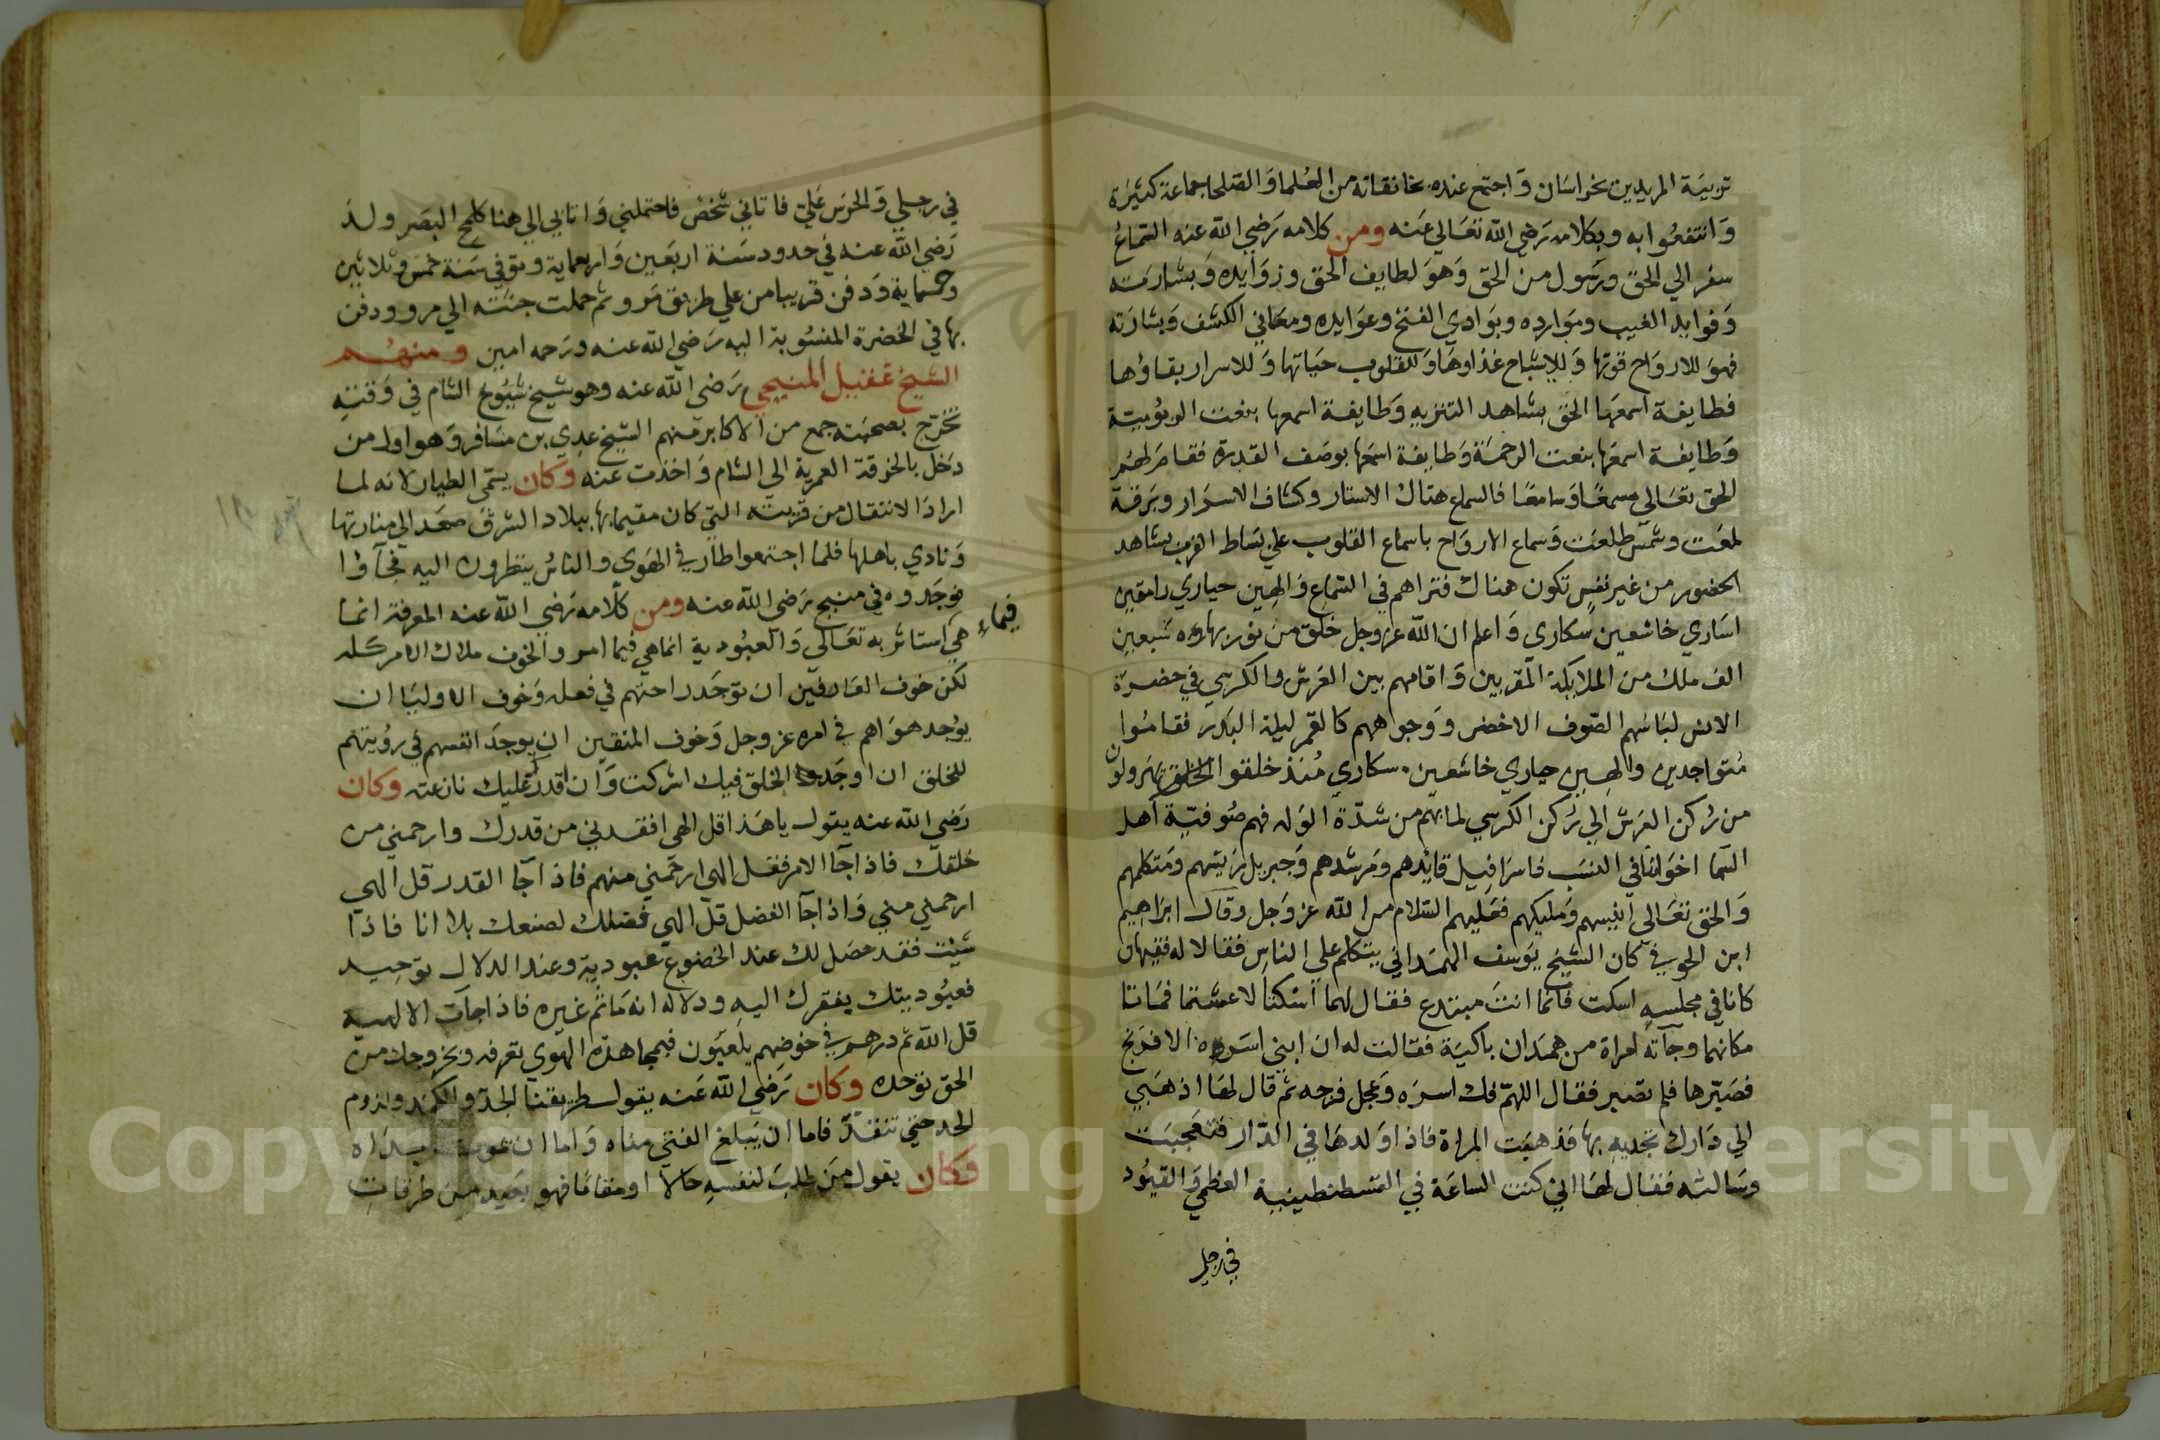 تربية المريدين بخراسان وَاجتمع عنده بخانقاته من العُلما وَالصلحا جماعة كثيرَة
وَانتفعُوا به وبكلامه رَضي الله تعَالي عَنه ومن كلامه رَضي الله عنه السّماعُ
سفر الي الحق ورَسُول من الحق وَهوَ لطايف الحق وزوَايده وَبشارته
وَفوايد الغيب ومَوارده وبَوادي الفتح وعوَايده ومعَاني الكشف وَبشارَته
فهوَ للاروَاح قوتها وَللاشباح غذاوهَا وَللقلوب حيَاتها وَللاسرار بقاوُها
فطايفة اسمعَها الحق بشاهد التنزيه وَطايفة اسمعها بنعت الربُوبيّة
وَطايفة اسمعَها بنعت الرحمَة وَطايفة اسمعَها بوصَف القدرة فقامَ لهُم
الحق تعَالي مسمعًا وَسَامعًا فالسماع هتاك الاستار وكشاف الاسرَار وبَرقة
لمعَت وشمسٌ طلعَت وَسماع الاروَاح باسماع القلوب علي بسَاط القرب بشاهد
الحضور من غير نفسٍ تكون هناك فتراهم في السّماع وَالهِين حياري رامقين
اسَاري خاشعين سكاري وَاعلم ان الله عز وجل خلق من نور بهاوه سَبعين
الف مَلك من الملايكة المقربين وَاقامهم بين العَرش والكرسي في حضرَة
الانس لبَاسُهم الصّوف الاخضر وَوجوههم كالقمر ليلة البَدر فقامُوا
مُتوَاجدين والهِين حيَاري خاشعين سكاري مُنذ خلقوا يهَرولون
من رُكن العَرش الي رُكن الكرسي لما بهم من شدّة الوَله فهم صُوفيّة اَهل
السّما اخوَاننا في النسَب فاسرَافيل قائدهم ومَرشدهم وَجبريل رَئيسهم ومَتكلمهم
وَالحق تعَالي انيسهم وَمَليكهم فعَليهم السّلام من الله عز وَجل وقال ابرَاهيم
ابن الحوفي كان الشيخ يوَسف الهمَداني يتكلم علي الناس فقالا له فقيهان
كانا في مجلسه اسكت فانما انتَ مبتدع فقال لهما اسكتا لا عشتما فمَاتا
مكانهما وجآته امراة من همَدان باكيَة فقالت له ان ابني اسَروه الافرَنج
فصَبّرها فلم تصَبر فقال اللهمّ فك اسرَه وَعجل فرجه ثم قال لهَا اذهَبي
الي دَارك تجديه بها فذهبَت المراة فاذا وَلدهَا في الدّار فتعَجبَت
وسَالته فقال لهَا اني كنت الساعَة في القسطنطينية العظمي وَالقيُود
في رجلي
في رجلي وَالحرَس عَليّ فاتاني شخصٌ فاحتملني وَاتابي الي هنا كلمح البصَر ولدَ
رَضي الله عنه في حدود سَنة اربَعين وَاربعماية وتوفي سَنة خمسٍ وثلاثين
وخمسماية وَدفن قريبا من علي طريق مَرو ثم حملت جثته الي مرو ودفن
بها في الحضرة المنسُوبة اليه رَضي الله عنه ورَحمه امين ومنهُم
الشيخ عَقيل المنبجي رَضي الله عنه وهو شيخ شيُوخ الشام في وَقته
تخرّج بصحبَته جمع من الاكابر منهم الشيخ عدي بن مسَافر وَهو اول من
دخل بالخرقة العمرية الي الشام وَاخذت عنه وَكان يسمّي الطيار لانه لما
ارادَ الانتقال من قريته التي كان مقيما بها ببلاد الشرق صعَد الي منارتها
وَنادي باهلها فلما اجتمعوا طار في الهوَي والناسُ ينظرون اليه فجآوُا
فوَجَدوه في منبج رَضي الله عنه ومن كلامه رَضي الله عنه المعرفة انما
هي فيماء استاثر به تعَالي وَالعبُودية انما هي فيما امر والخوف ملاك الامر كله
لكن خوف العَارفين ان توجَد راحتهم في فعله وَخوف الاوليَا ان
يوُجد هوَاهم في امره عز وجل وَخوف المتقين ان يوجدَ انفسهم في رؤيتهم
للخلق ان اوجَد الخلق فيك اشركت وَان اقدرُ عليك نازعته وَكان
رَضي الله عنه يقول ياهَذا قل الهي افقدني من قدرك وارحمني من
خلقك فاذا جآ الامر فقل الهي ارحَمني منهم فاذا جآ القدر قل الهي
ارحمني مني وَاذا جآ الفضل قل الهي فضلك لصنعك بلا انا فاذا
شئت فقد حصَل لك عند الخضوع عبودية وعند الدلال توحيد
فعبُوديتك بفقرك اليه ودلاله انه مَا ثم غيره فاذا جآت الالهية
قل الله ثم درهم في خوضهم يلعَبون فبمجاهدَة الهوي تعرفه وبخروجك من
الحق توَحده وَكان رَضي الله عَنه يقول طريقنا الجدّ والكد ولزوم
الحد حتي تنقدّ فاما ان يَبلغ الفتي مناه وَاما ان بداه
وَكان يقول مَن طلبَ لنفسه حالا او مقامًا فهو بعَيد من طرقات